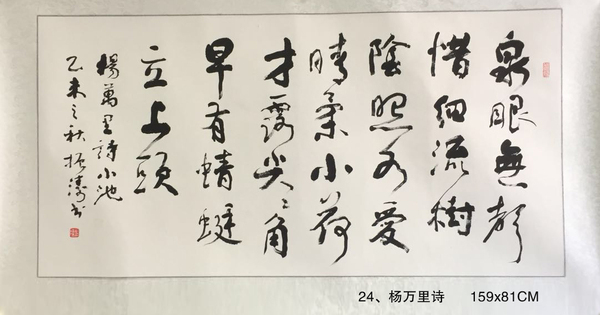 泉眼無聲
惜細流樹
陰照水愛
晴柔小荷
才露尖〻角
早有蜻蜓
立上頭
楊萬里詩小池
乙未之秋振濤书
24、杨万里诗 159x81CM